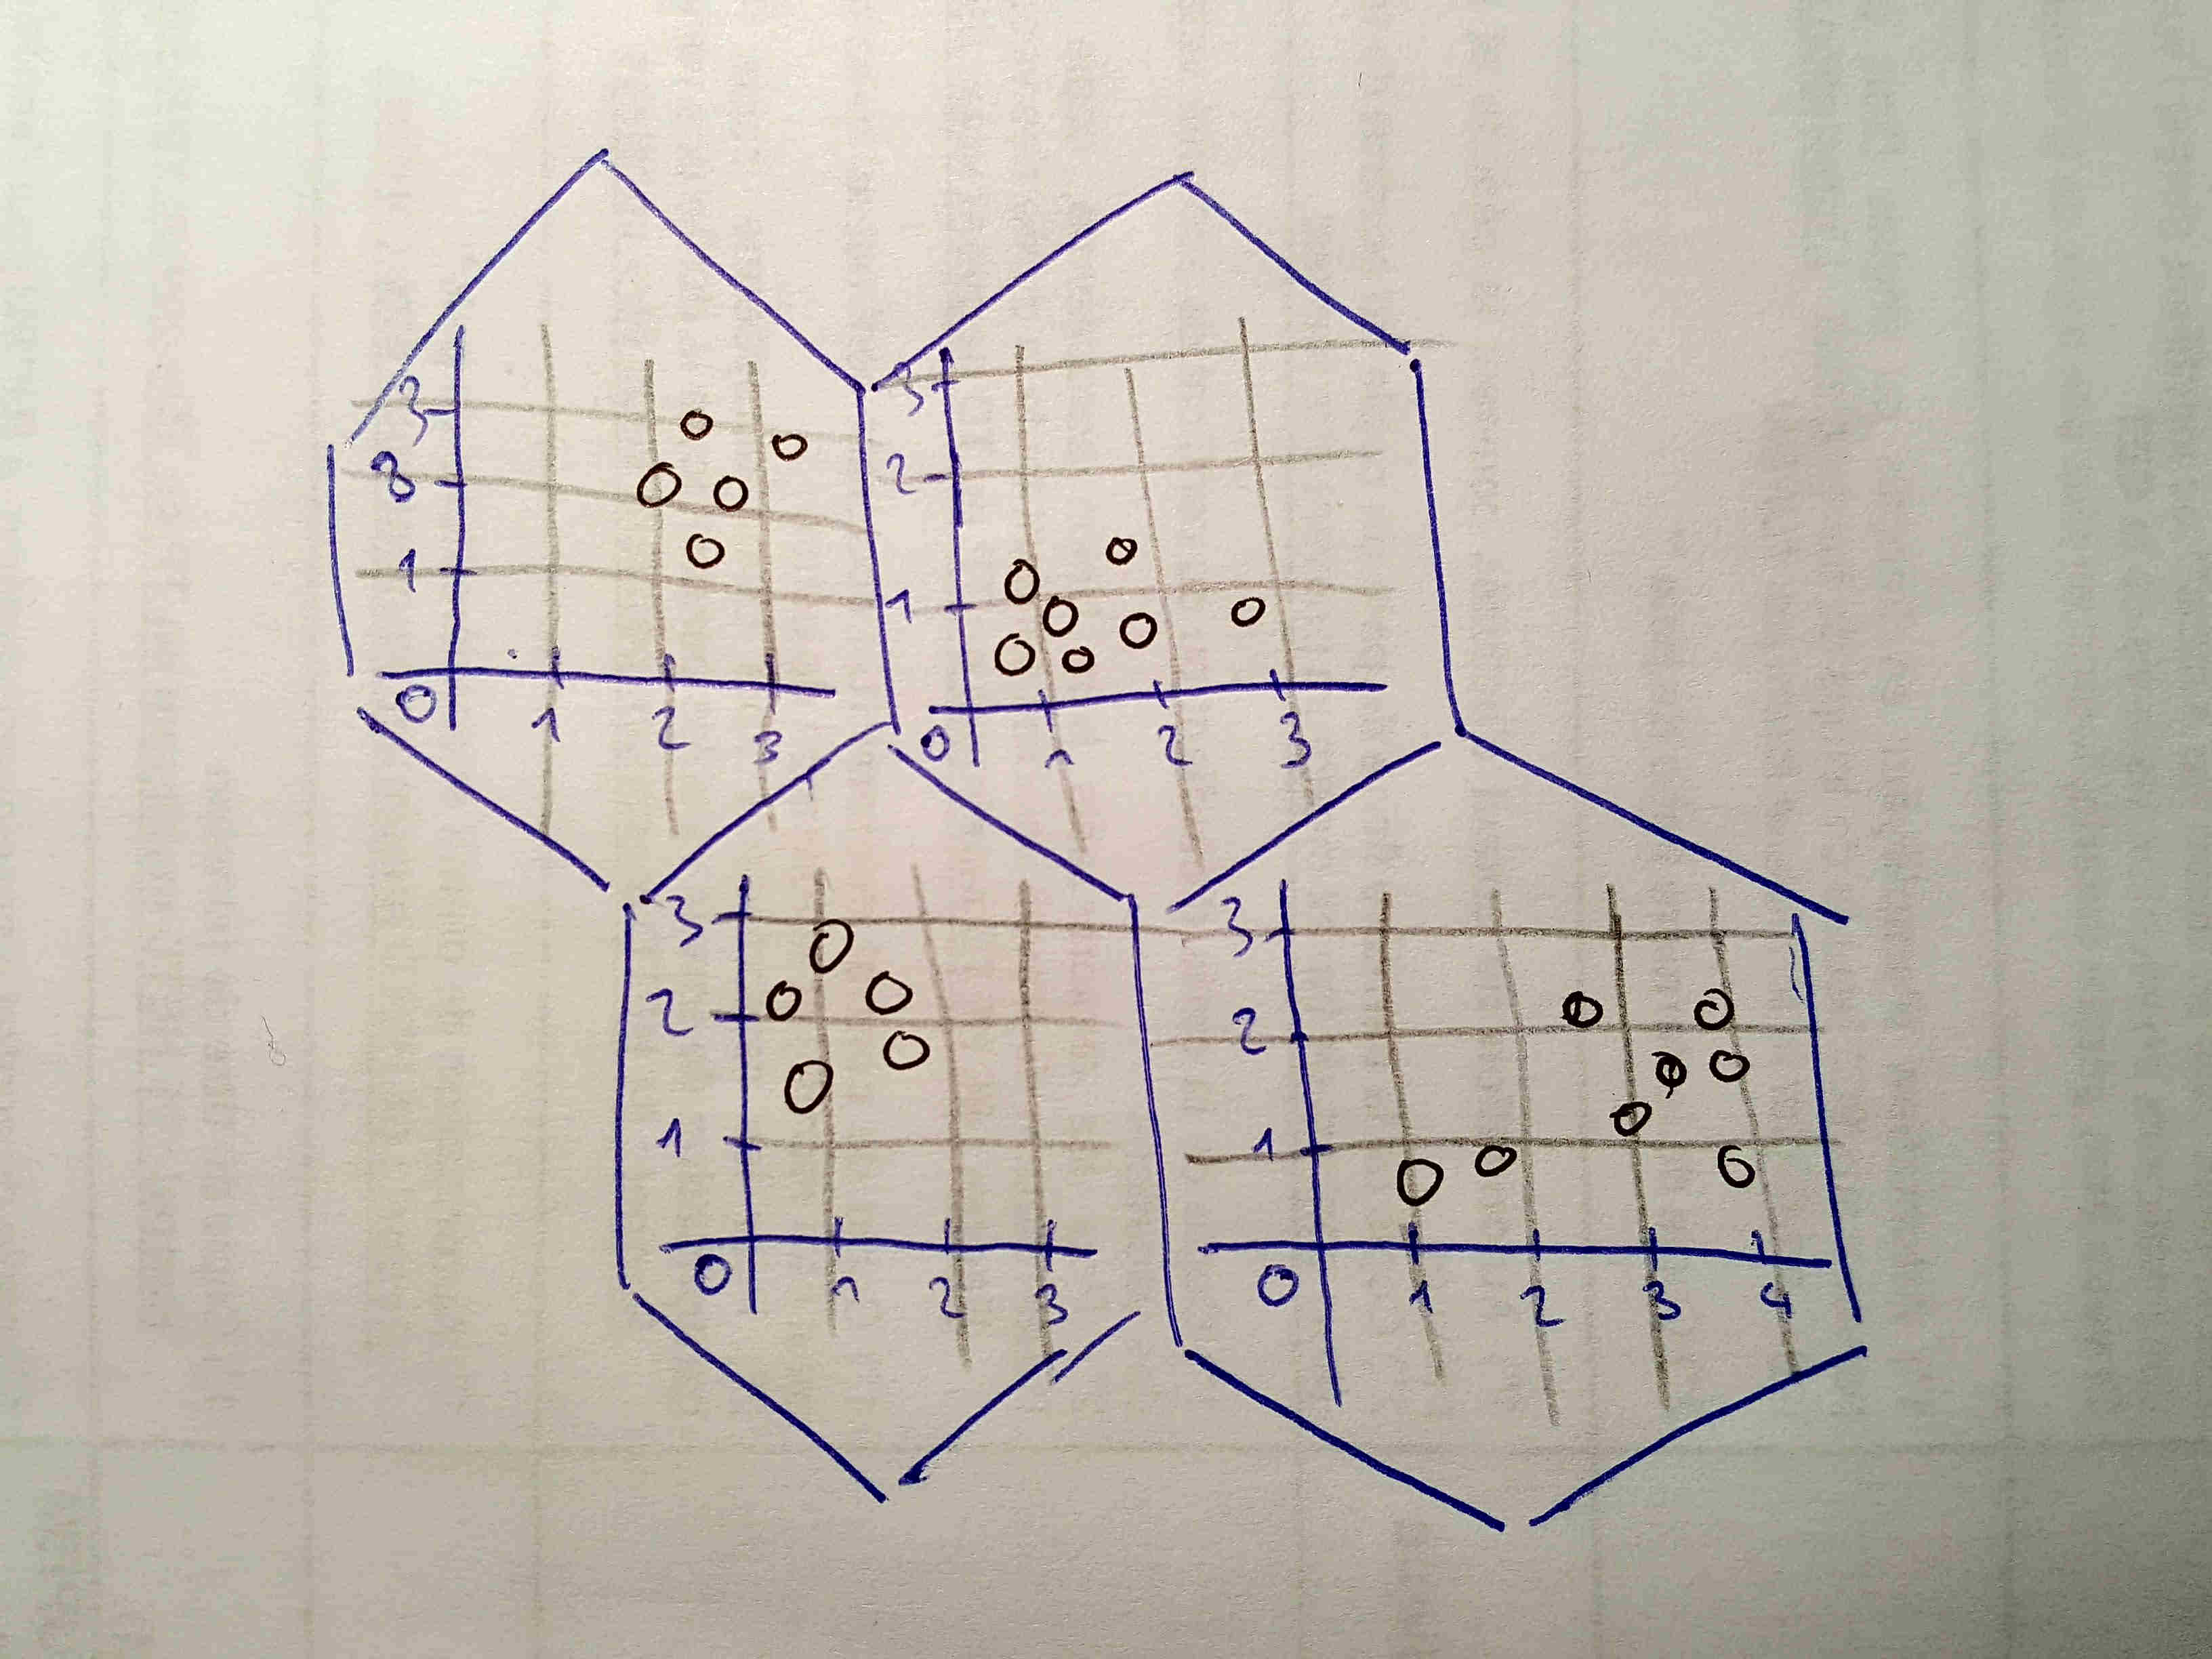 3
8
1
0 1 2 3
3
2
1
0 1 2 3
3
2
1
0 1 2 3
3
2
1
0 1 2 3 4